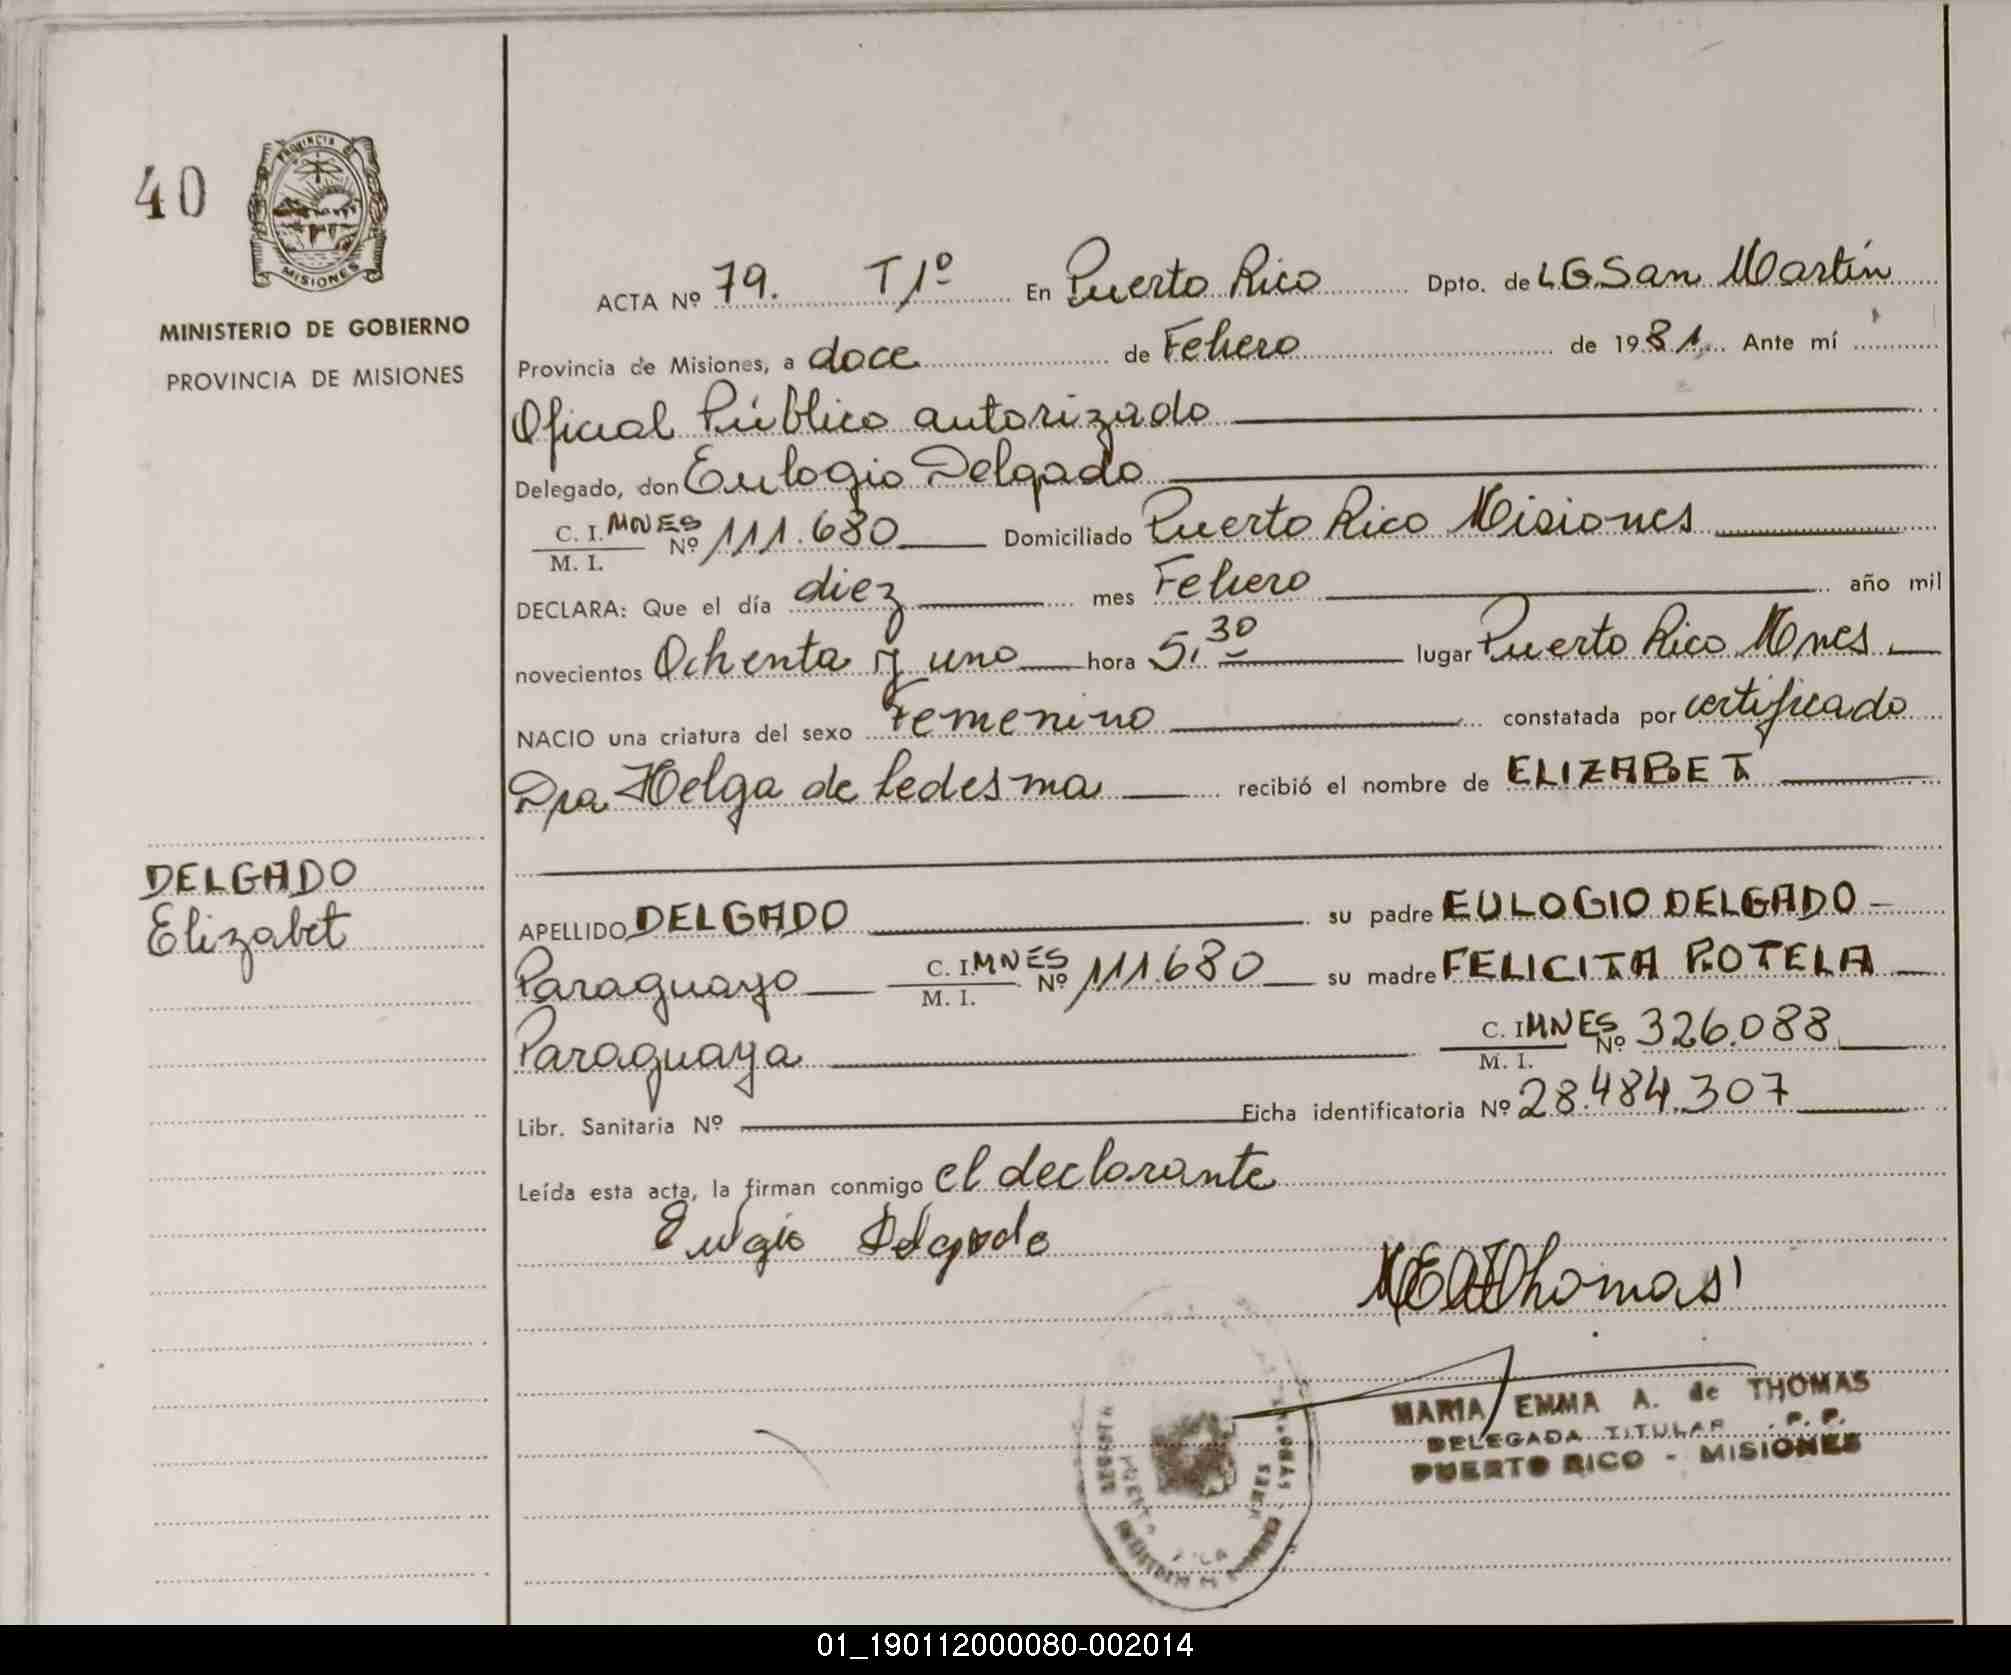 40
PROVINCIA DE
MISIONES
MINISTERIO DE GOBIERNO
PROVINCIA DE MISIONES
DELGADO
Elizabet
ACTA Nº 79. T/1º En Puerto Rico Dpto. de L.G.San Martín
Provincia de Misiones, a doce de Febrero de 1981. Ante mí
Oficial Público autorizado
Delegado, don Eulogio Delgado
C. I. MNES
M. I. Nº 111.680 Domiciliado Puerto Rico Misiones
DECLARA: Que el día diez mes Febrero año mil
novecientos Ochenta y uno hora 5,30 lugar Puerto Rico Mnes
NACIO una criatura del sexo Femenino constatada por certificado
Dra Helga de Ledesma recibió el nombre de ELIZABET
APELLIDO DELGADO su padre EULOGIO DELGADO
Paraguayo C. I. MNES M. I. Nº 111.680 su madre FELICITA ROTELA
Paraguaya C. I. MNES M. I. Nº 326.088
Libr. Sanitaria Nº Ficha identificatoria Nº 28.484.307
Leída esta acta, la firman conmigo el declarante
Eulgio Delgado
MEAdThomas
MARIA EMMA A. de THOMAS
DELEGADA TITULAR P. P.
PUERTO RICO - MISIONES
01_190112000080-002014